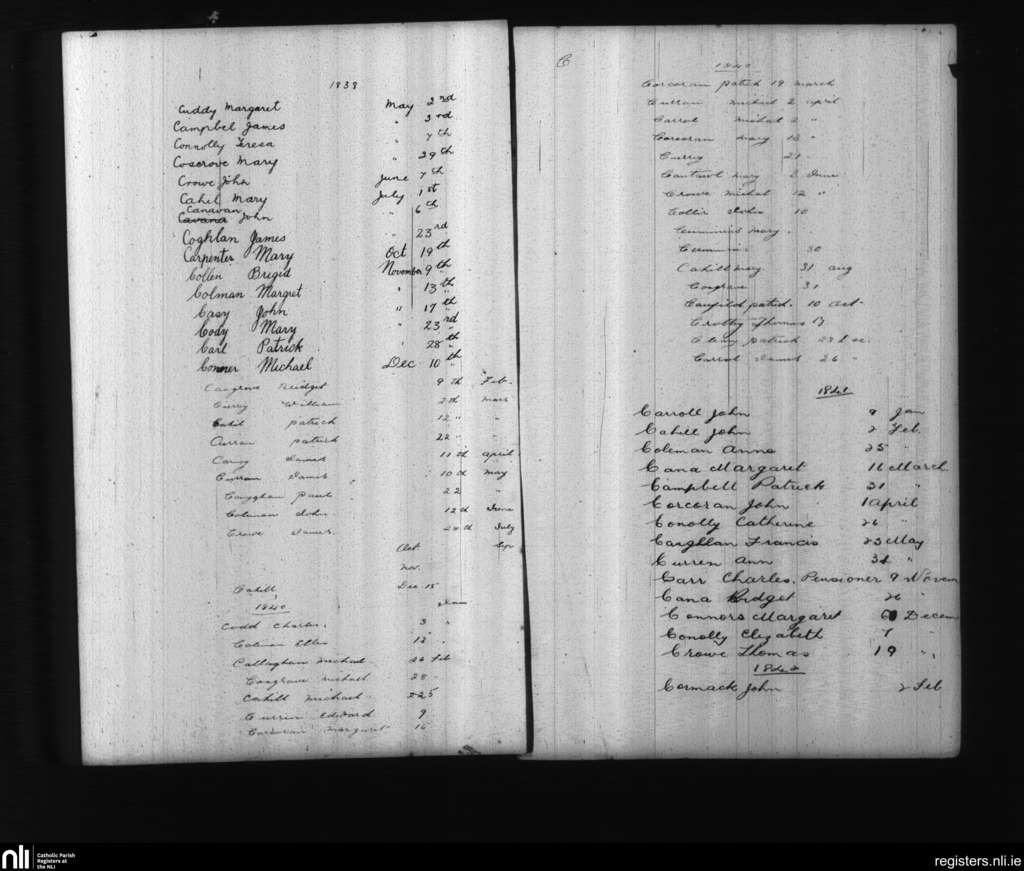 1838
Cuddy Margaret May 2nd
Campbel James " 3rd
Connolly Teresa " 7th
Cosgrove Mary " 29th
Crowe John June 7th
Cahil Mary July 1st
Canavan
Cavana John " 6th
Coghlan James " 23rd
Carpenter Mary Oct 19th
Collen Brigid November 9th
Colman Margret " 13th
Casy John " 17th
Cody Mary " 23rd
Carl Patrick " 28th
Conner Michael Dec 10th
Cosgrove Bridget 9th Feb.
Curry William 2th Mar
Cahil Patrick 12 "
Curran Patrick 22 "
James 11th April
Curran James 10th May
22 "
Coleman John 12th June
Crowe James 24th July
Oct. Sep
Nov.
Cahill Dec 15
1840 Jan
Codd Charles 3 "
Colman Ellen 13 "
Callaghan Michael 26 Feb
Cosgrave Michael 28
Cahill Michael 225
Curren Edward 9
Corcoran Margaret 16
C
1840
Corcoran Patrick 19 March
Curran Michael 2 April
Carrol Michael 2 "
Corcoran Mary 13 "
Curry 21
Mary 3 June
Crowe Michael 12 "
John 10
Cummins Mary
30
Cahill Mary 31 Aug
Cosgrave 31
Patrick 10 Oct
Crotty Thomas 17
Cleary Patrick 23 Dec.
Carrol James 26 "
1841
Carroll John 9 Jan
Cahill John 2 Feb
Coleman Anne 25 "
Cana Margaret 16 March
Campbell Patrick 31 "
Corcoran John 1 April
Conolly Catherine 26 "
Caughlan Francis 23 May
Curren Ann 31 "
Carr Charles. Pensioner 9 Novem
Cana Bridget 26 "
Connors Margaret 6 Decem
Conolly Elizabeth 7 "
Crowe Thomas 19 "
1842
Cormack John 2 Feb
nli Catholic Parish
Registers at
the NLI
registers.nli.ie